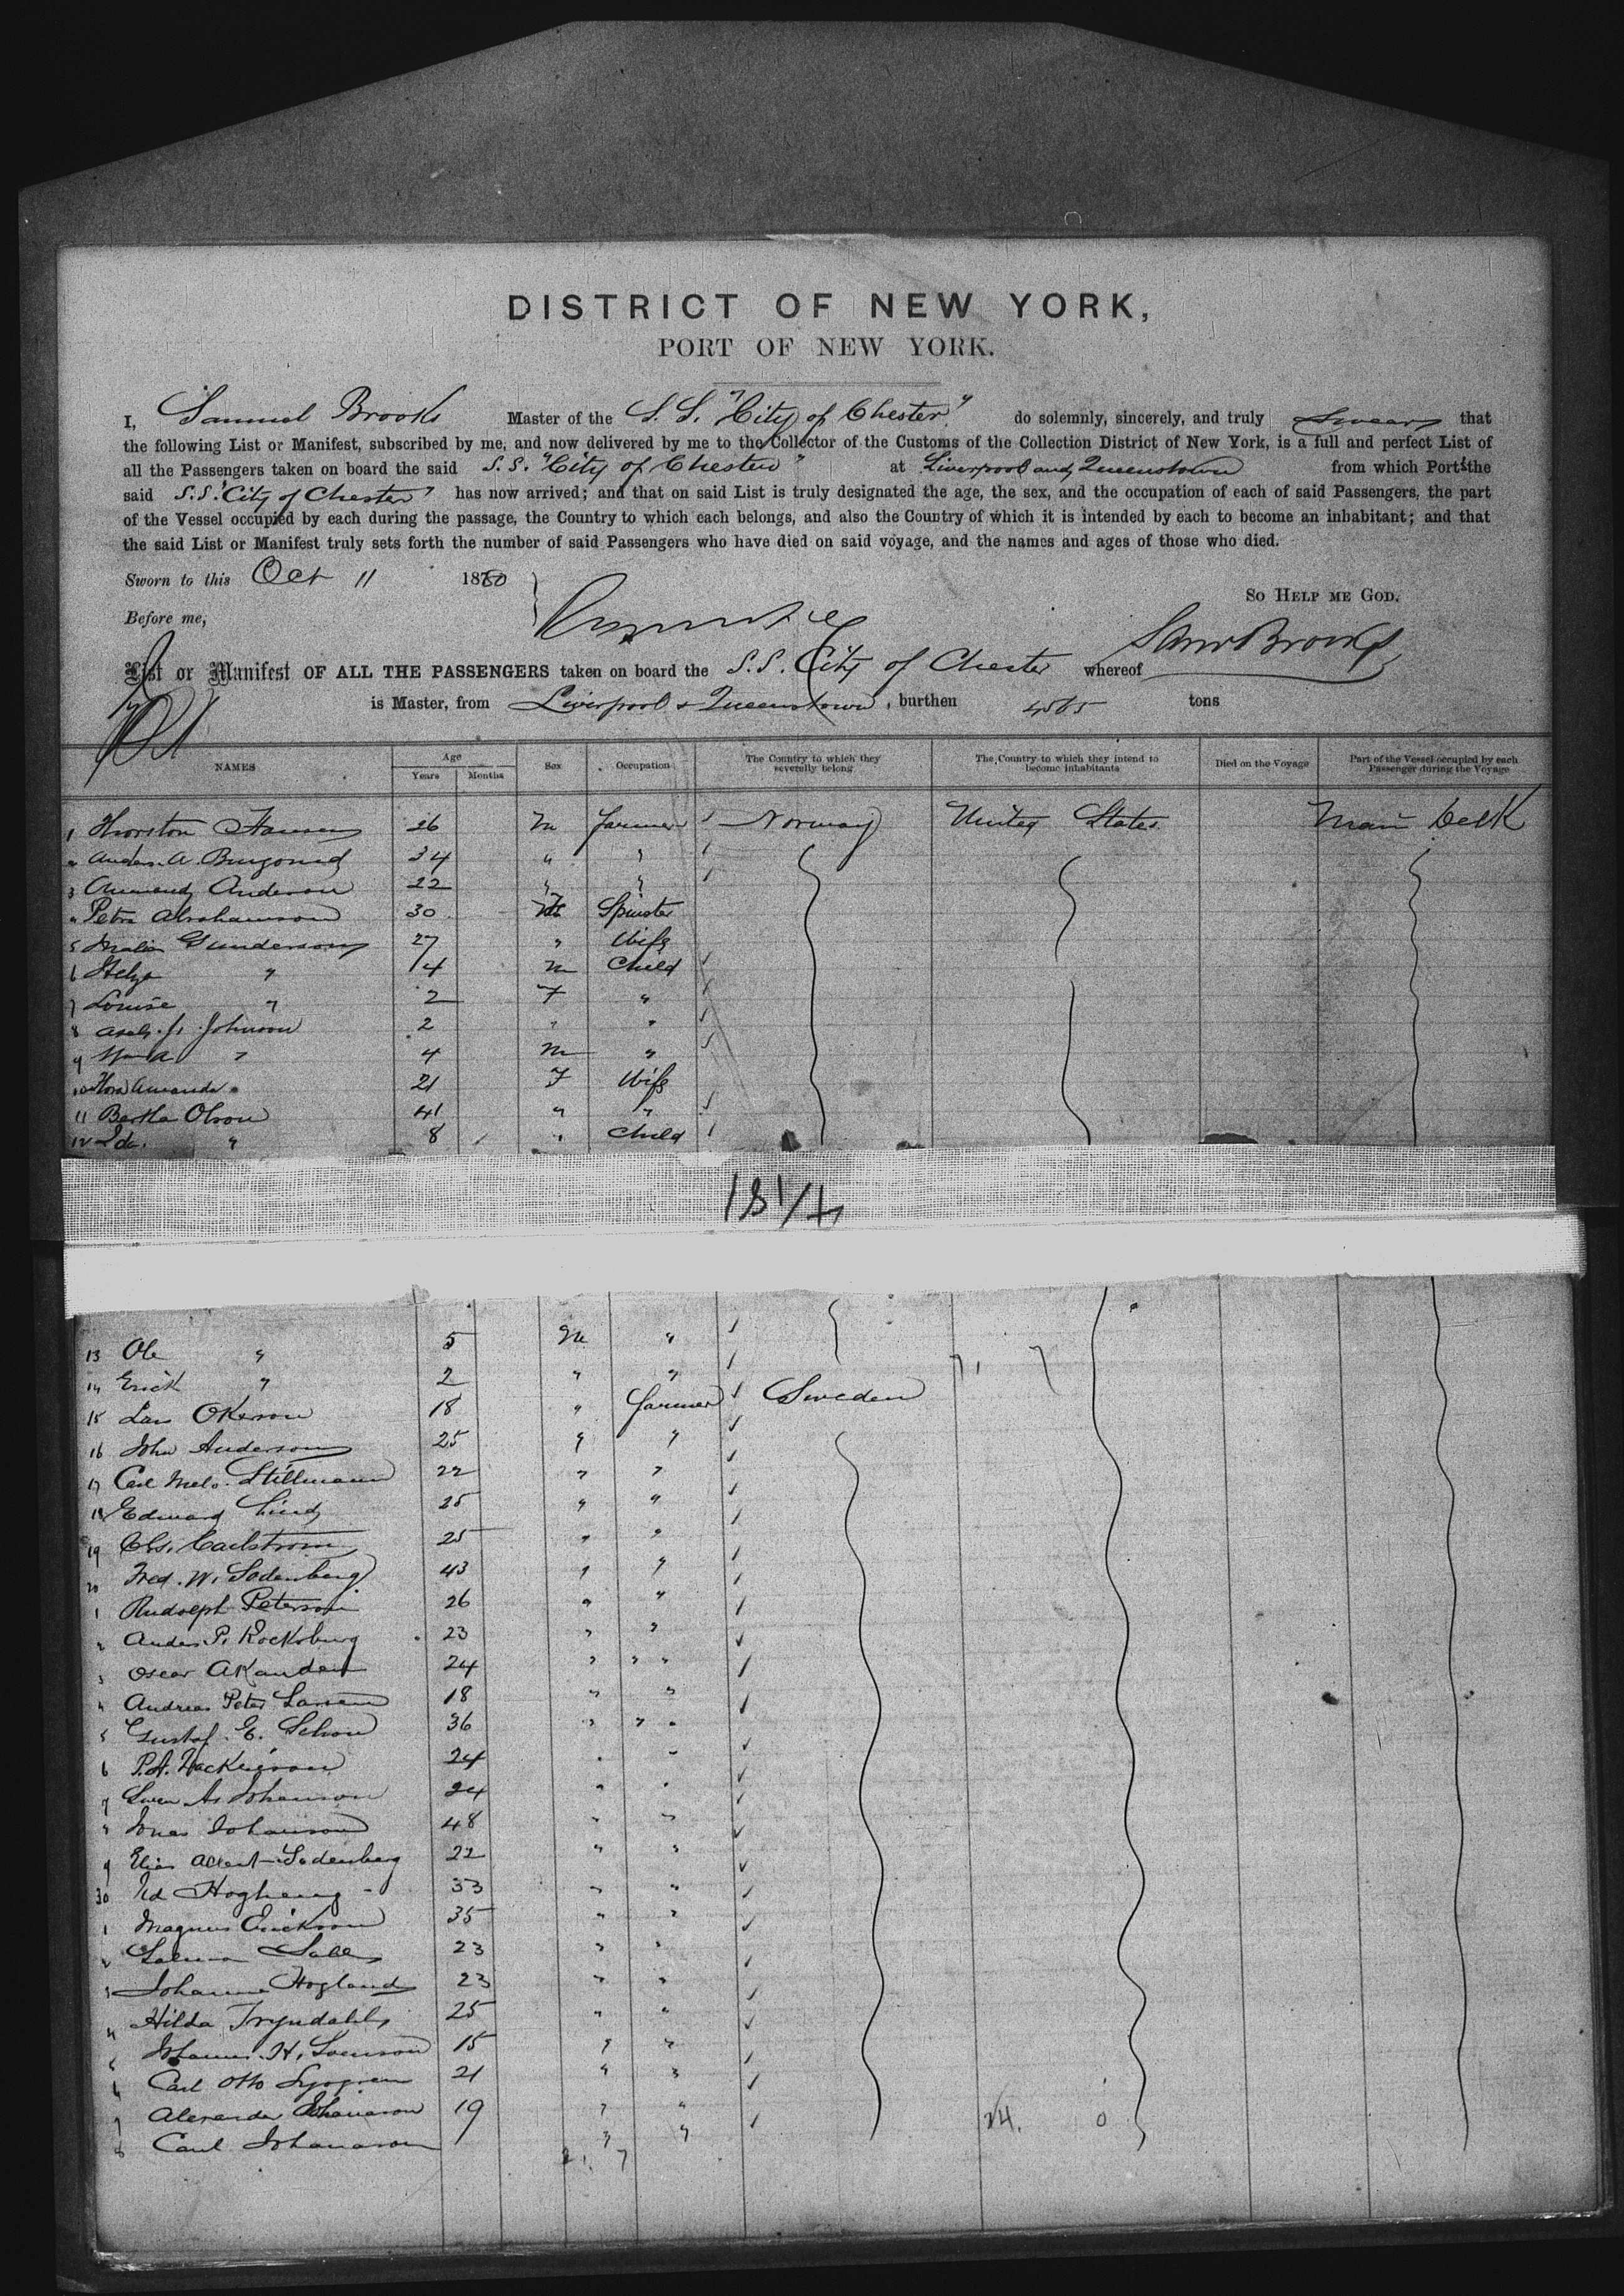 DISTRICT OF NEW YORK,
PORT OF NEW YORK.
I, Samuel Brooks Master of the S. S. "City of Chester" do solemnly, sincerely, and truly swear that
the following List or Manifest, subscribed by me, and now delivered by me to the Collector of the Customs of the Collection District of New York, is a full and perfect List of
all the Passengers taken on board the said S. S. "City of Chester" at Liverpool and Queenstown from which Port's the
said S.S. "City of Chester" has now arrived; and that on said List is truly designated the age, the sex, and the occupation of each of said Passengers, the part
of the Vessel occupied by each during the passage, the Country to which each belongs, and also the Country of which it is intended by each to become an inhabitant; and that
the said List or Manifest truly sets forth the number of said Passengers who have died on said voyage, and the names and ages of those who died.
Sworn to this Oct 11 1880
So HELP ME GOD.
Before me,
Saml Brooks
List or Manifest OF ALL THE PASSENGERS taken on board the S.S. City of Chester whereof
is Master, from Liverpool & Queenstown, burthen 4565 tons
NAMES Age Years Months Sex Occupation The Country to which they severally belong The Country to which they intend to become inhabitants Died on the Voyage Part of the Vessel occupied by each Passenger during the Voyage
1 Thorston Hansen 26 M farmer Norway United States Main Deck
2 Anders A. 34 " "
3 Anderson 22 " "
4 Petra Abrahamson 30 F Spinster
5 Malin Gunderson 27 " Wife
6 Helga " 14 M Child
7 Louise " 2 F "
8 Johnson 2 " "
9 " 4 M "
10 Amanda " 21 F Wife
11 Bertha Olson 41 " "
12 Ida " 8 " Child
181/4
13 Ole " 5 M "
14 Erick " 2 " "
15 Lars Okerson 18 " farmer Sweden
16 John Anderson 25 " "
17 Carl Stillmann 22 " "
18 Edward Lind 25 " "
19 Chs. Carlstrom 25 " "
20 Fred. W. Sodenberg 43 " "
1 Rudolph Peterson 26 " "
2 Anders P. Rocksburg 23 " "
3 Oscar 24 " "
4 Andreas Peter Larsen 18 " "
5 Gustaf E. Schon 36 " "
6 P.A. 24 " "
7 Swen A. Johanson 24 " "
8 Jonas Johanson 48 " "
9 Elias Sodenberg 22 " "
30 33 " "
1 Magnus Erickson 35 " "
2 23 " "
3 Johanna Hogland 23 " "
4 Hilda 25 " "
5 H. Swenson 15 " "
6 Carl Otto 21 " "
7 Alexander Johanson 19 " "
8 Carl Johanason " "
24. 0